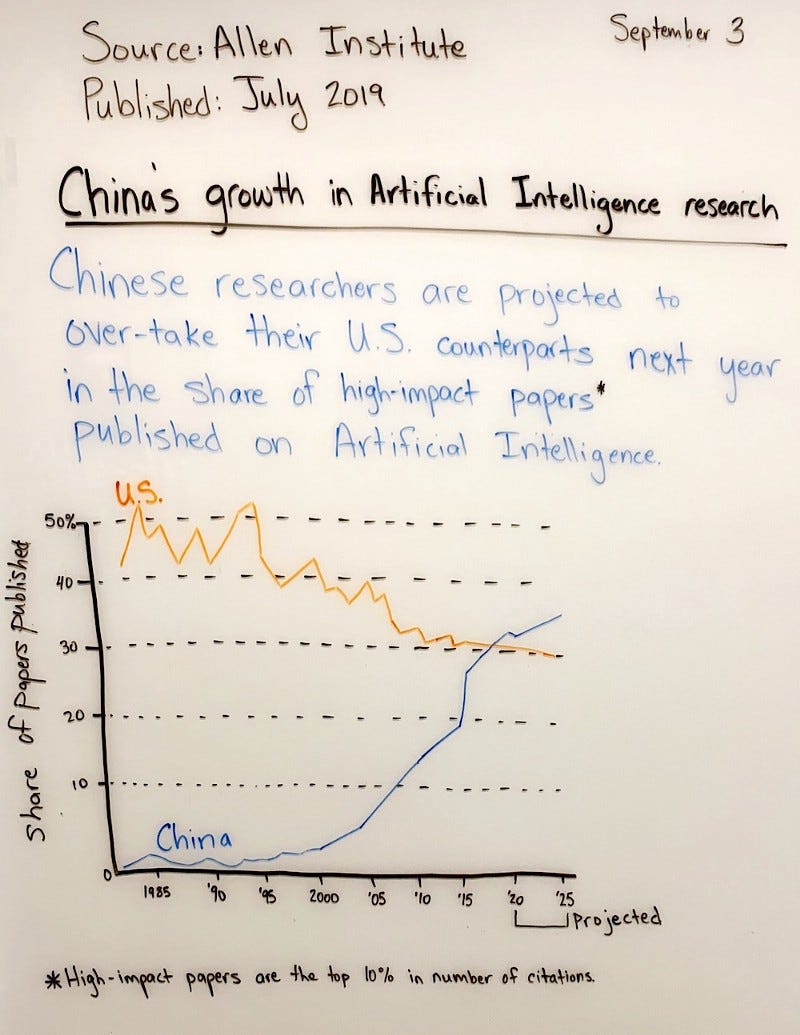 Source: Allen Institute
Published: July 2019
September 3
China's growth in Artificial Intelligence research
Chinese researchers are projected to
over-take their U.S. counterparts next year
in the share of high-impact papers*
published on Artificial Intelligence.
U.S.
50%
40
30
20
10
0
Share of Papers published
China
1985 '90 '95 2000 '05 '10 '15 '20 '25
Projected
*High-impact papers are the top 10% in number of citations.